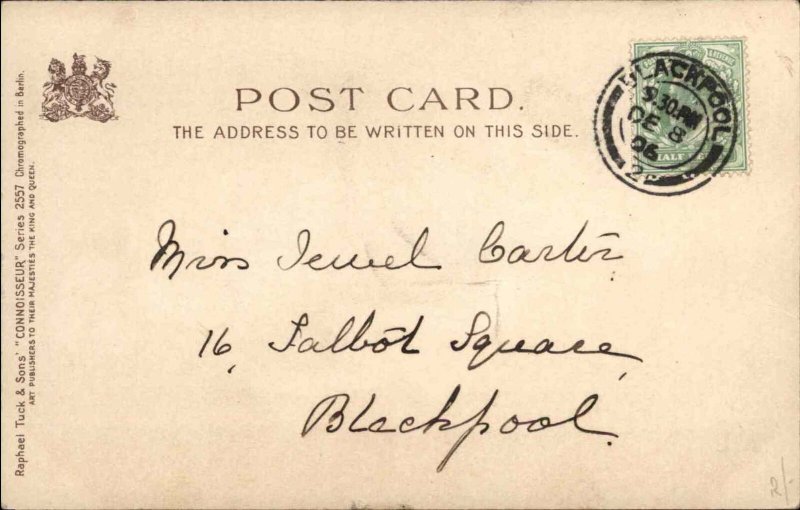 POST CARD.
THE ADDRESS TO BE WRITTEN ON THIS SIDE.
BLACKPOOL
9.30.PM
DE 8
06
HALF
Miss Jewel Carter
16, Talbot Square,
Blackpool.
Raphael Tuck & Sons' "CONNOISSEUR" Series 2557 Chromographed in Berlin.
ART PUBLISHERS TO THEIR MAJESTIES THE KING AND QUEEN.
2/-